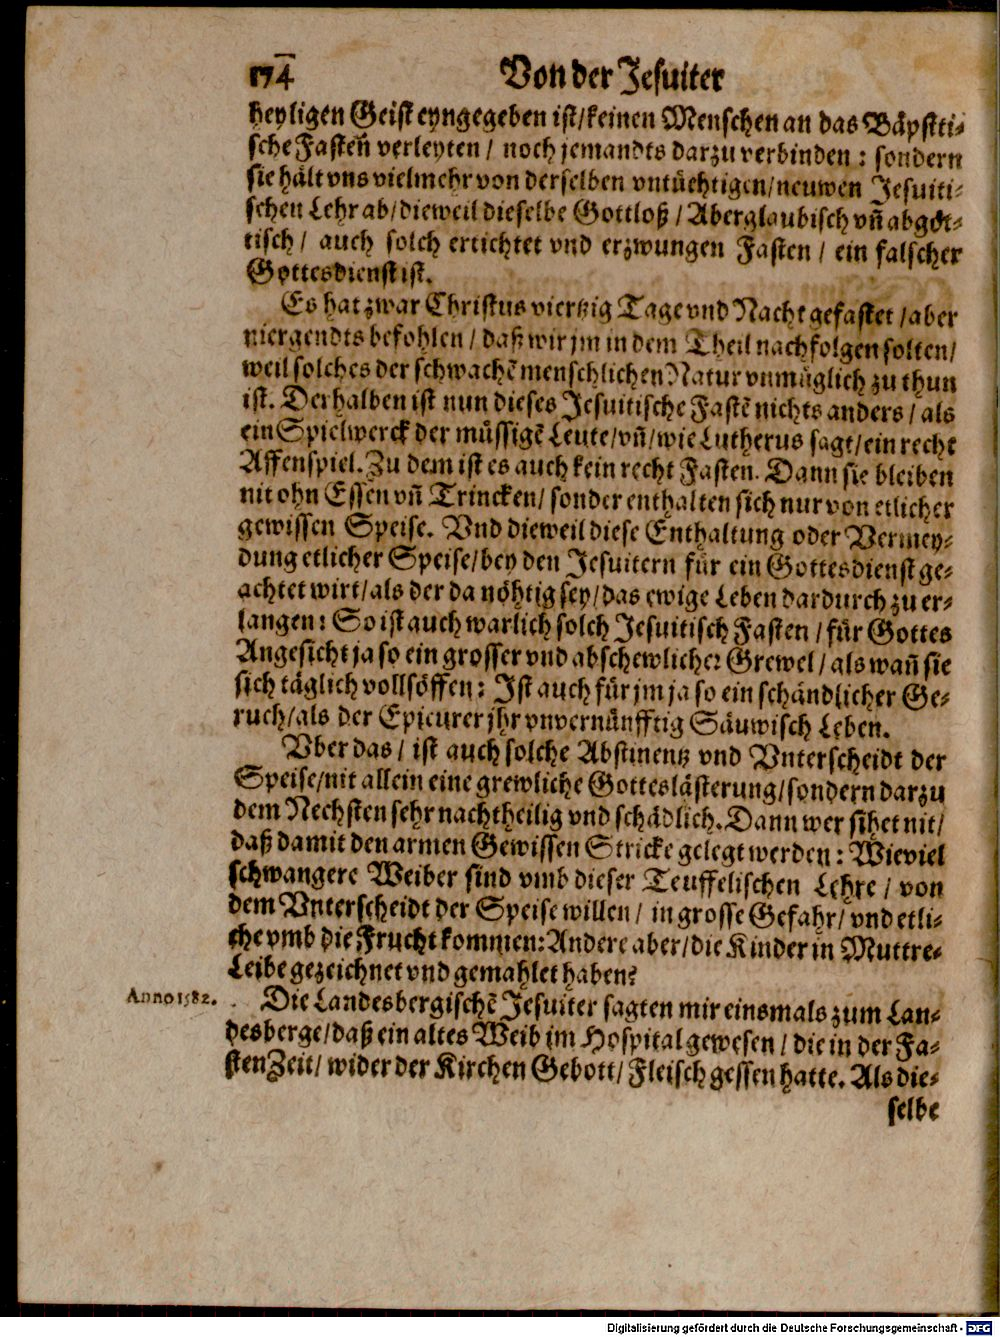 174 Von der Jesuiter
heyligen Geist eyngegeben ist/keinen Menschen an das Bäpsti-
sche Fasten̄ verleyten / noch jemandts darzu verbinden : sondern
sie hält vns vielmehr von derselben vntüchtigen/neuwen Jesuiti-
schen Lehr ab/dieweil dieselbe Gottloß / Aberglaubisch vn̄ abgöt-
tisch / auch solch ertichtet vnd erzwungen Fasten / ein falscher
Gottesdienst ist.
Es hat zwar Christus viertzig Tage vnd Nacht gefastet / aber
niergendts befohlen / daß wir jm in dem Theil nachfolgen solten/
weil solches der schwachē menschlichen Natur vnmüglich zu thun
ist. Derhalben ist nun dieses Jesuitische Fastē nichts anders / als
ein Spielwerck der müssigē Leute/vn̄/wie Lutherus sagt/ein recht
Affenspiel. Zu dem ist es auch kein recht Fasten. Dann sie bleiben
nit ohn Essen vn̄ Trincken/ sonder enthalten sich nur von etlicher
gewissen Speise. Vnd dieweil diese Enthaltung oder Vermey-
dung etlicher Speise/bey den Jesuitern für ein Gottesdienst ge-
achtet wirt/als der da nöhtig sey/das ewige Leben dardurch zu er-
langen: So ist auch warlich solch Jesuitisch Fasten / für Gottes
Angesicht ja so ein grosser vnd abschewlicher Grewel / als wan̄ sie
sich täglich vollsöffen: Ist auch für jm ja so ein schändlicher Ge-
ruch/als der Epicurer jhr vnvernünfftig Säuwisch Leben.
Vber das / ist auch solche Abstinentz vnd Vnterscheidt der
Speise/nit allein eine grewliche Gotteslästerung/sondern darzu
dem Nechsten sehr nachtheilig vnd schädlich. Dann wer sihet nit/
daß damit den armen Gewissen Stricke gelegt werden : Wieviel
schwangere Weiber sind vmb dieser Teuffelischen Lehre / von
dem Vnterscheidt der Speise willen / in grosse Gefahr/ vnd etli-
che vmb die Frucht kommen: Andere aber/die Kinder in Muttre-
Leibe gezeichnet vnd gemahlet haben?
Anno 1582. Die Landesbergischē Jesuiter sagten mir einsmals zum Lan-
desberge/daß ein altes Weib im Hospital gewesen / die in der Fa-
sten Zeit/ wider der Kirchen Gebott/ Fleisch gessen hatte. Als die-
selbe
Digitalisierung gefördert durch die Deutsche Forschungsgemeinschaft - DFG